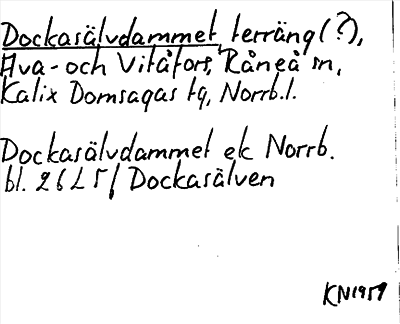 Dockasälvdammet, terräng (?),
Hva- och Vitåfors, Råneå sn,
Kalix Domsagas tg, Norrb.l.
Dockasälvdammet ek Norrb.
bl. 26 L 5 / Dockasälven
KN1959